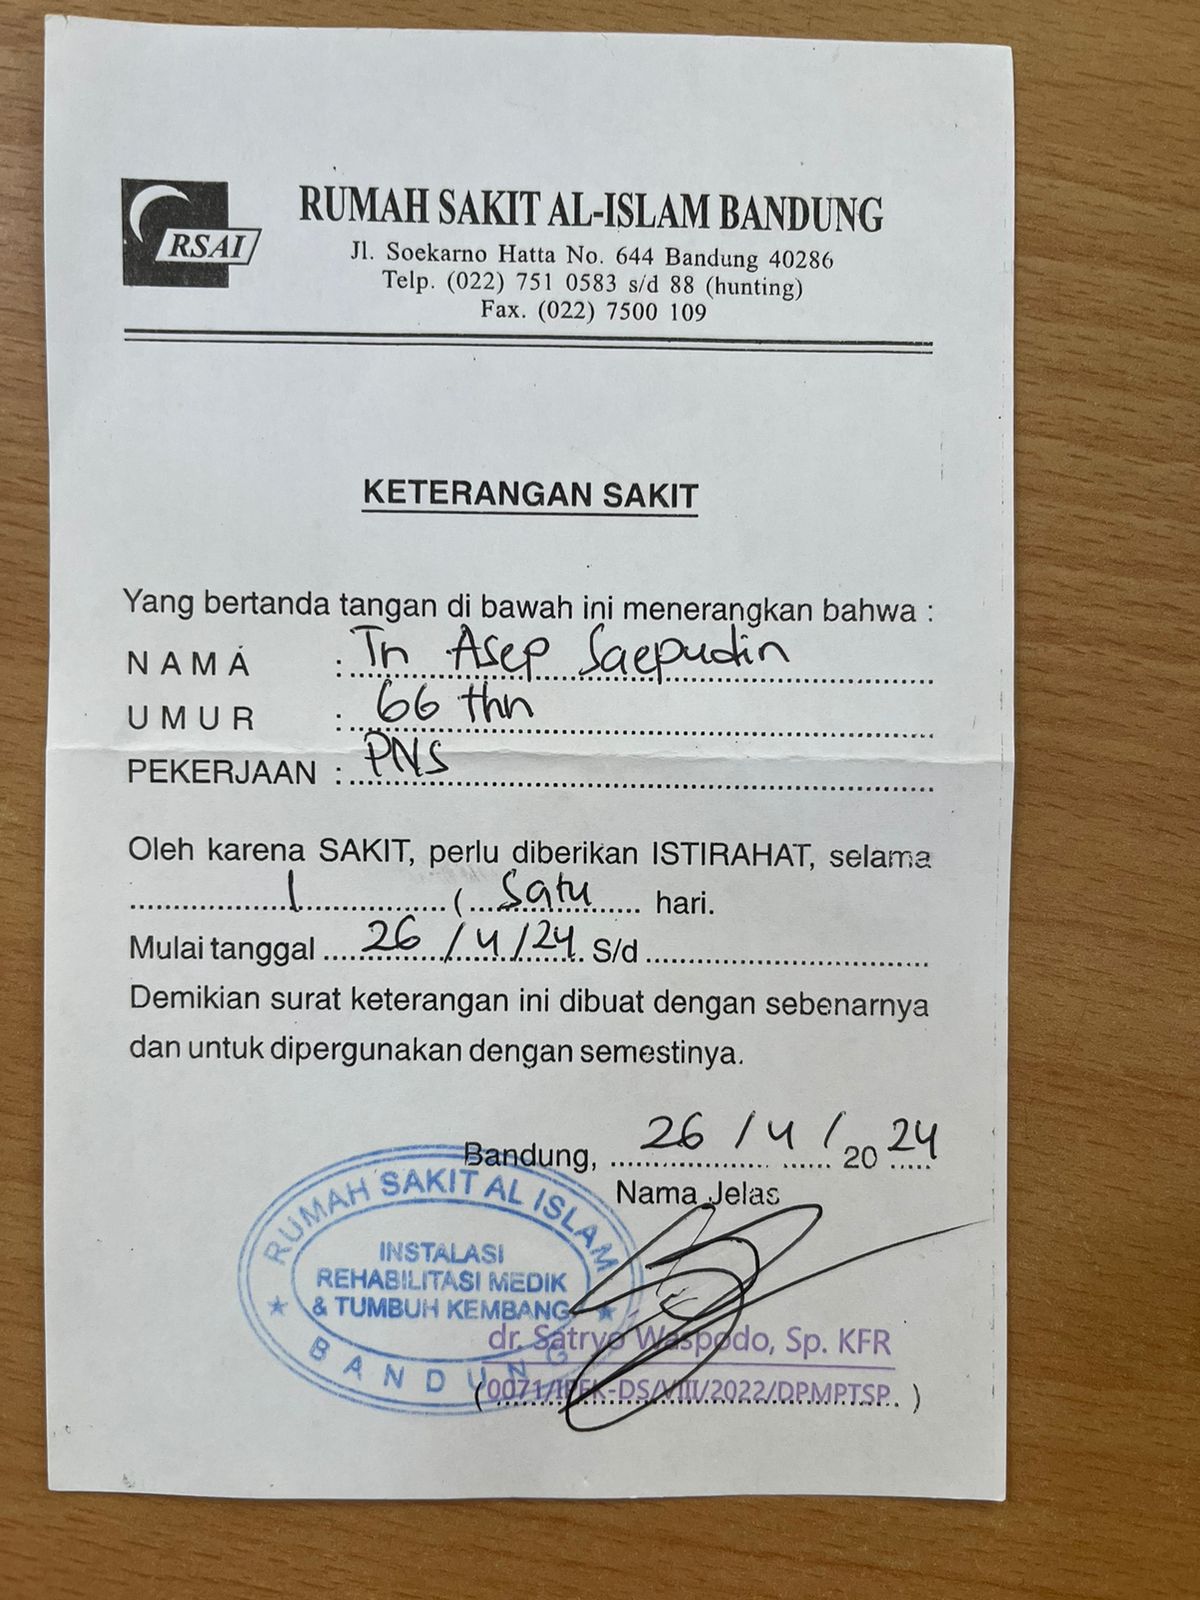 RSAI
RUMAH SAKIT AL-ISLAM BANDUNG
Jl. Soekarno Hatta No. 644 Bandung 40286
Telp. (022) 751 0583 s/d 88 (hunting)
Fax. (022) 7500 109
KETERANGAN SAKIT
Yang bertanda tangan di bawah ini menerangkan bahwa :
NAMA : Tn Asep Saepudin
UMUR : 66 thn
PEKERJAAN : PNS
Oleh karena SAKIT, perlu diberikan ISTIRAHAT, selama
1 ( Satu hari.
Mulai tanggal 26/4/24 S/d
Demikian surat keterangan ini dibuat dengan sebenarnya
dan untuk dipergunakan dengan semestinya.
Bandung, 26/4/2024
Nama Jelas
RUMAH SAKIT AL ISLAM
INSTALASI
REHABILITASI MEDIK
& TUMBUH KEMBANG
BANDUNG
dr. Satryo Waspodo, Sp. KFR
(0071/IPFK-DS/VIII/2022/DPMPTSP)